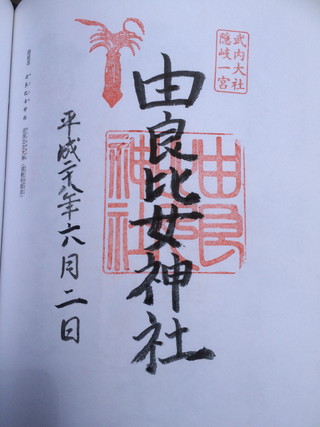 式内大社
隠岐一宮
由良比女神社
平成二十八年六月二日